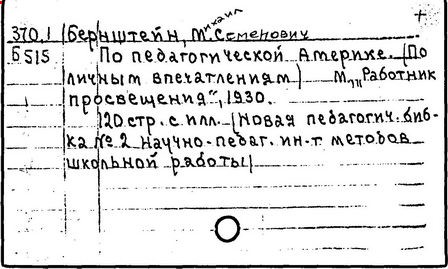 370.1 Бернштейн, Михаил Семенович
Б515 По педагогической Америке. (По
личным впечатлениям) М., „Работник
просвещения", 1930.
120 стр. с илл. (Новая педагогич. биб-
ка № 2 научно-педаг. ин-т методов
школьной работы)